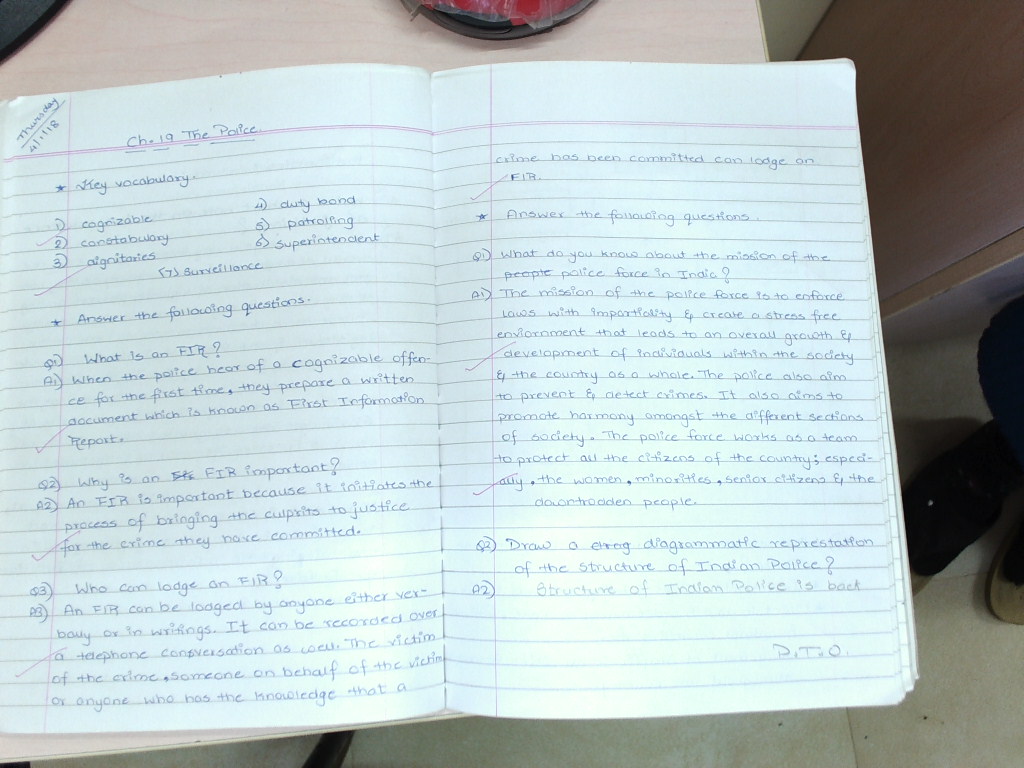 Thursday
4/1/18
Ch. 19 The Police.
* Key vocabulary.
1) cognizable
2) constabulary
3) dignitaries
4) duty bond
5) patrolling
6) superintendent
(7) Surveillance
* Answer the following questions.
Q1) What is an FIR?
A1) When the police hear of a cognizable offen-
ce for the first time, they prepare a written
document which is known as First Information
Report.
Q2) Why is an FIR important?
A2) An FIR is important because it initiates the
process of bringing the culprits to justice
for the crime they have committed.
Q3) Who can lodge an FIR?
A3) An FIR can be lodged by anyone either ver-
bally or in writings. It can be recorded over
a telephone conversation as well. The victim
of the crime, someone on behalf of the victim
or anyone who has the knowledge that a
crime has been committed can lodge an
FIR.
* Answer the following questions.
Q1) What do you know about the mission of the
people police force in India?
A1) The mission of the police force is to enforce
laws with impartiality & create a stress free
enviornment that leads to an overall growth &
development of individuals within the society
& the country as a whole. The police also aim
to prevent & detect crimes. It also aims to
promote harmony amongst the different sections
of society. The police force works as a team
to protect all the citizens of the country; especi-
ally, the women, minorities, senior citizens & the
downtrodden people.
Q2) Draw a diagrammatic represtation
of the structure of Indian Police?
A2) Structure of Indian Police is back
P.T.O.